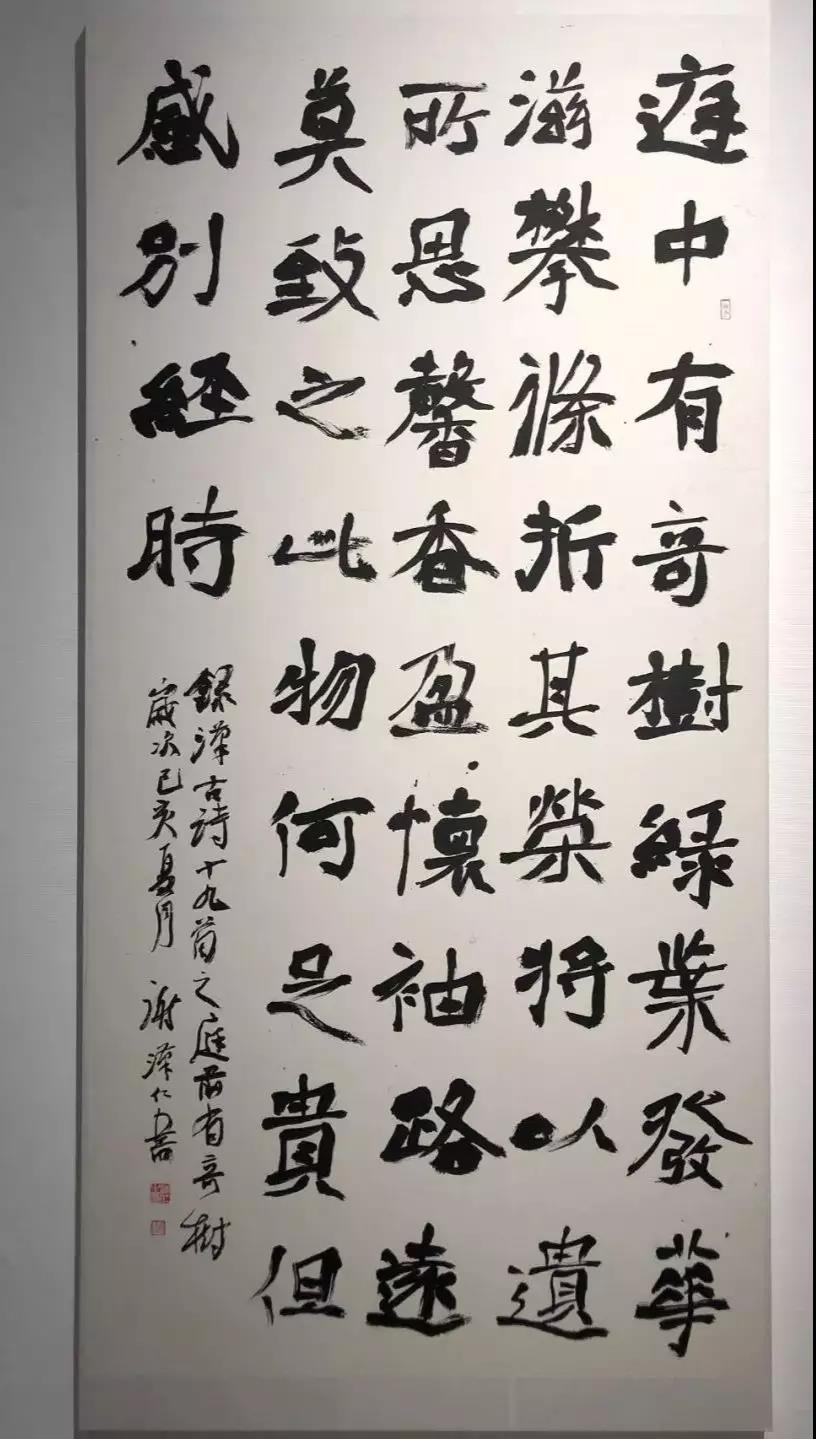 庭中有奇樹綠葉發華
滋攀條折其榮將以遺
所思馨香盈懷袖路遠
莫致之此物何足貴但
感別經時
錄漢古詩十九首之庭前有奇樹
歲次己亥夏月 謝漢仁書